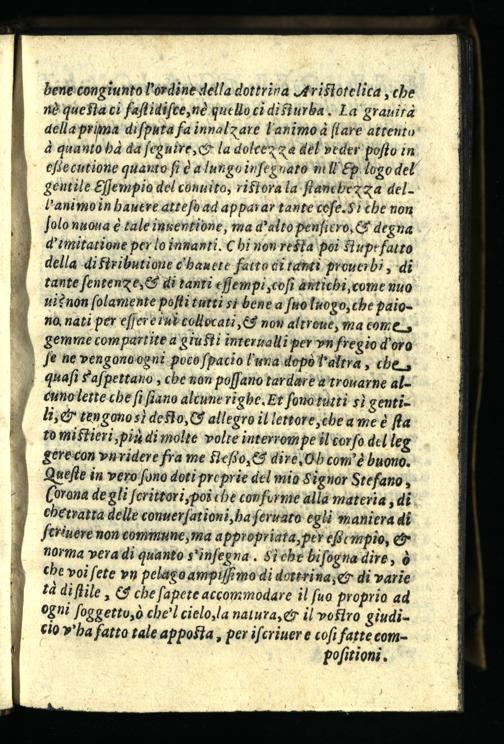 bene congiunto l'ordine della dottrina Aristotelica, che
nè questa ci fastidisce, nè quello ci disturba. La grauità
della prima disputa fa innalzare l'animo à stare attento
à quanto hà da seguire, & la dolcezza del veder posto in
essecutione quanto si è a lungo insegnato nell'Epilogo del
gentile Essempio del conuito, ristora la stanchezza del-
l'animo in hauere atteso ad apparar tante cose. Si che non
solo nuoua è tale inuentione, ma d'alto pensiero, & degna
d'imitatione per lo innanti. Chi non resta poi stupefatto
della distributione c'hauete fatto di tanti prouerbi, di
tante sentenze, & di tanti essempi, così antichi, come nuo
ui? non solamente posti tutti si bene a suo luogo, che paio-
no nati per essere iui collocati, & non altroue, ma come
gemme compartite a giusti interualli per vn fregio d'oro
se ne vengono ogni poco spacio l'una dopò l'altra, che
quasi s'aspettano, che non possano tardare a trouarne al-
cuno lette che si siano alcune righe. Et sono tutti sì genti-
li, & tengono sì desto, & allegro il lettore, che a me è sta
to mistieri, più di molte volte interrompe il corso del leg
gere con vn ridere fra me stesso, & dire, Oh com'è buono.
Queste in vero sono doti proprie del mio Signor Stefano,
Corona de gli scrittori, poi che conforme alla materia, di
che tratta delle conuersationi, ha seruato egli maniera di
scriuere non commune, ma appropriata, per essempio, &
norma vera di quanto s'insegna. Si che bisogna dire, ò
che voi sete vn pelago ampissimo di dottrina, & di varie
tà di stile, & che sapete accommodare il suo proprio ad
ogni soggetto, ò che'l cielo, la natura, & il vostro giudi-
cio v'ha fatto tale apposta, per iscriuer e cosi fatte com-
positioni.